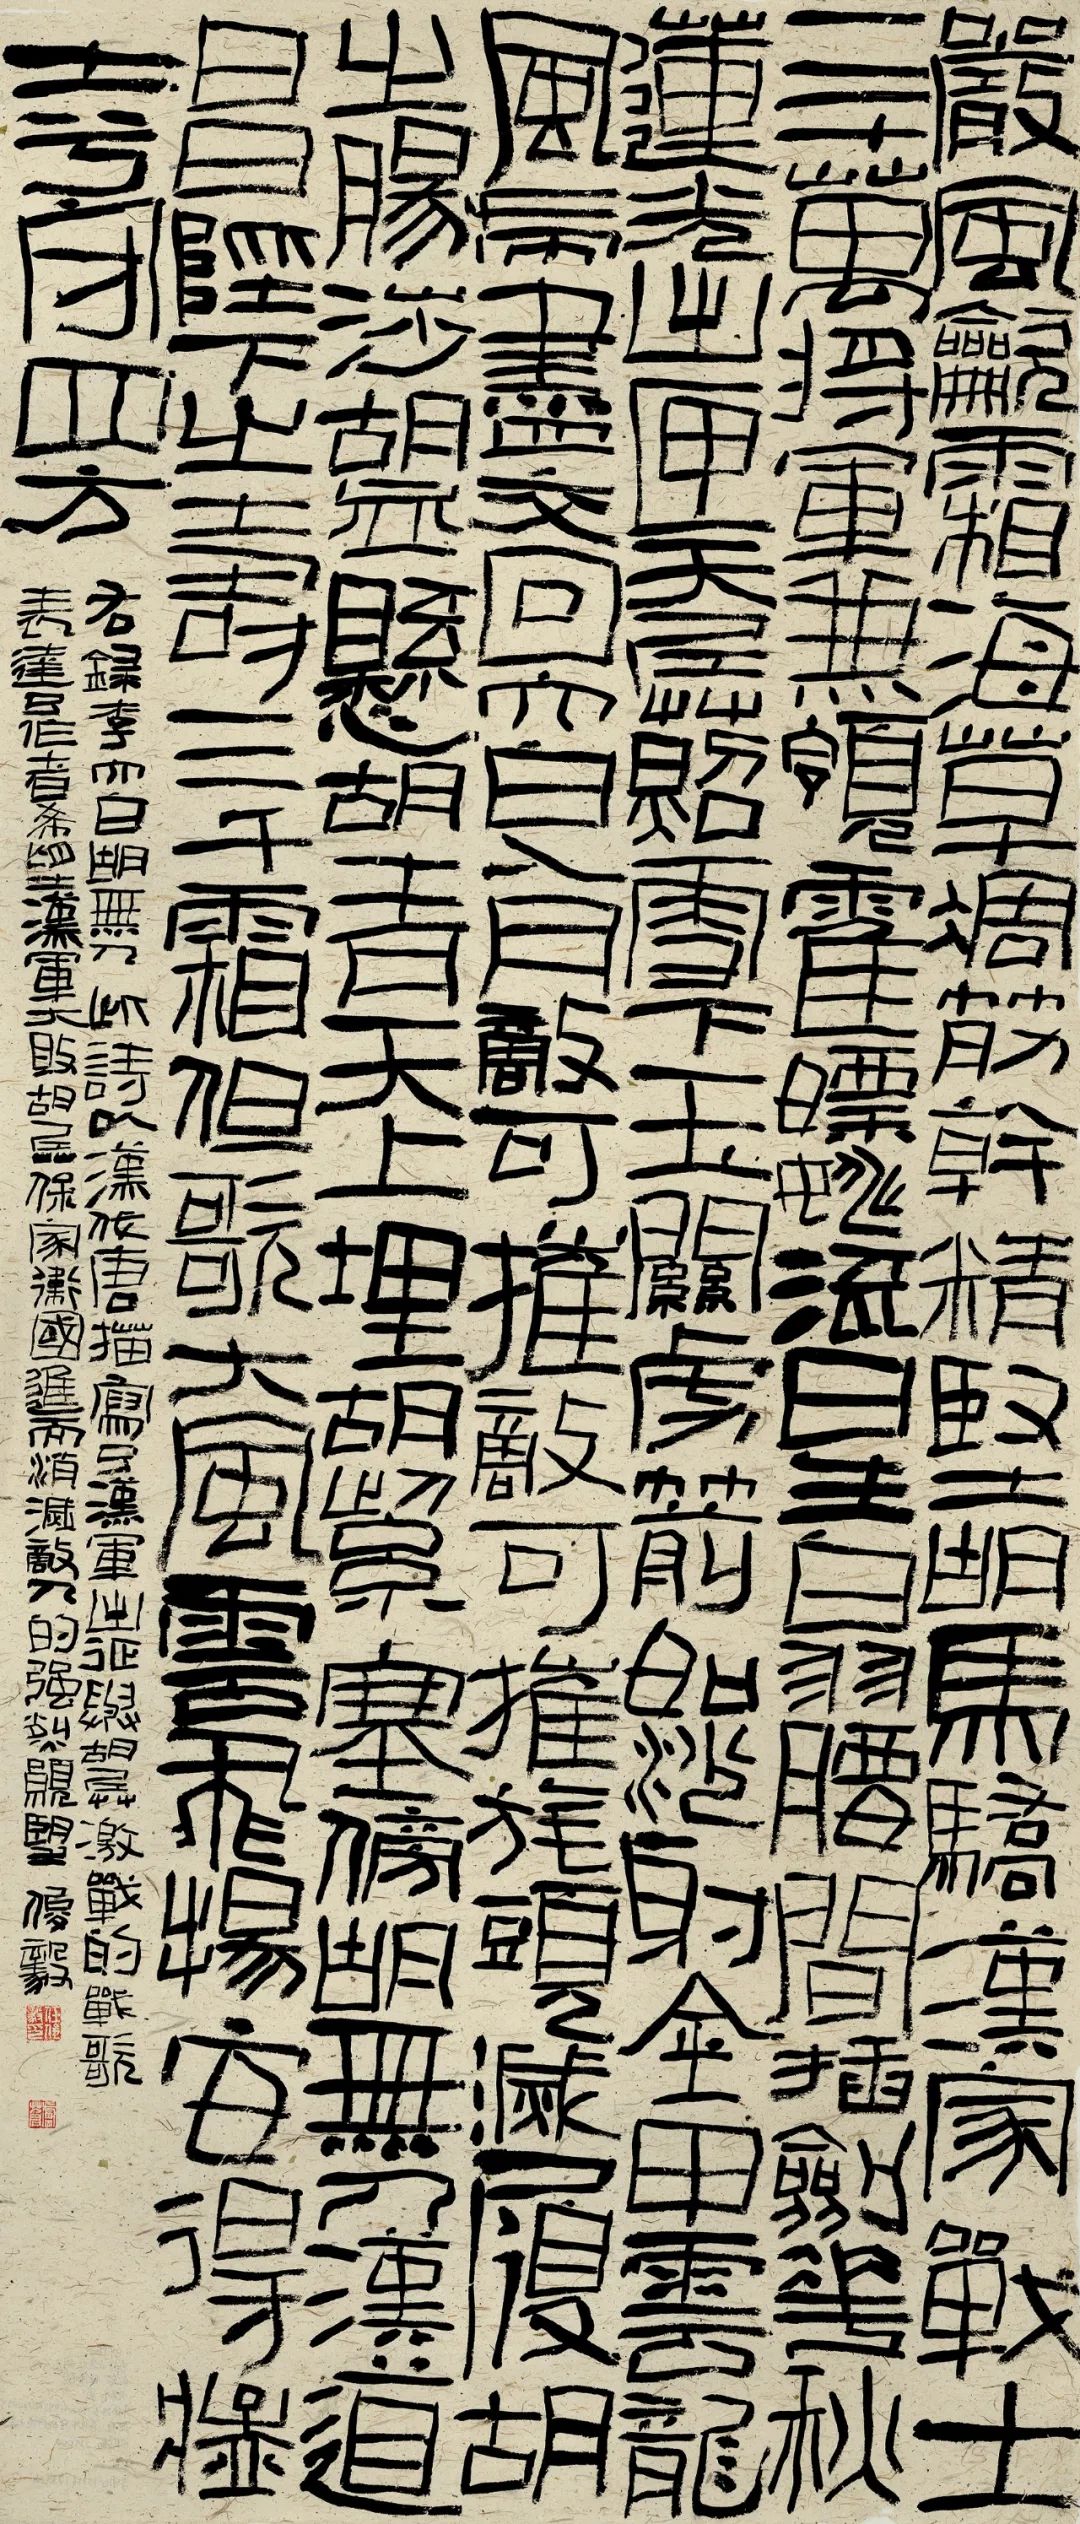 嚴風吹霜海草凋筋幹精堅胡馬驕漢家戰士
三十萬將軍兼領霍嫖姚流星白羽腰間插劍花秋
蓮光出匣天兵照雪下玉關虜箭如沙射金甲雲龍
風虎盡交回太白入月敵可摧敵可摧旄頭滅履胡
之腸涉胡血懸胡青天上埋胡紫塞傍胡無人漢道
昌陛下之壽三千霜但歌大風雲飛揚安得猛
士兮守四方
右錄李太白胡無人此詩以漢代唐描寫了漢軍出征與胡兵激戰的戰歌
表達了作者希望漢軍大敗胡兵保家衛國進而消滅敵人的强烈願望 俊毅